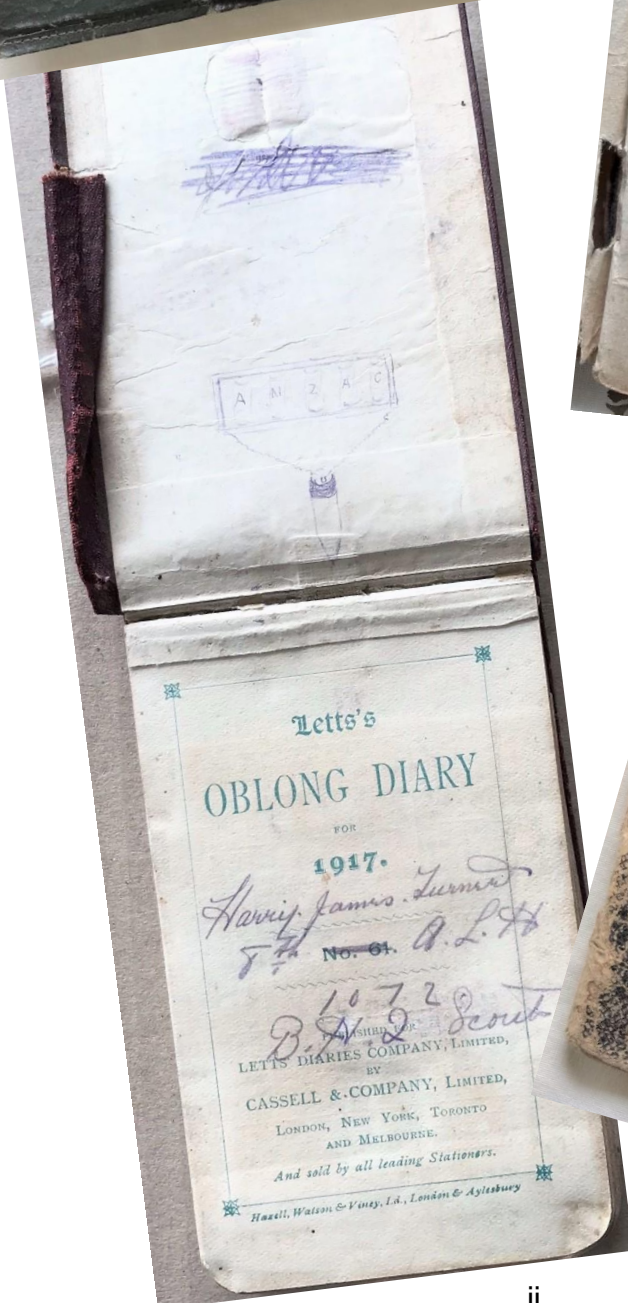 A N Z A C
Letts's
OBLONG DIARY
FOR
1917.
Harry. James. Turner
8th No. 61. A. L. H
1072
B. H. Q Scout
PUBLISHED FOR
LETTS' DIARIES COMPANY, LIMITED,
BY
CASSELL & COMPANY, LIMITED,
LONDON, NEW YORK, TORONTO
AND MELBOURNE.
And sold by all leading Stationers.
Hazell, Watson & Viney, Ld., London & Aylesbury
ii